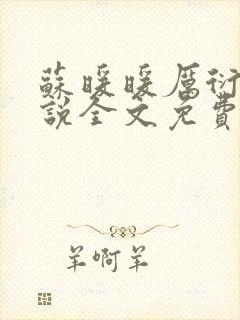 蘇暖暖厲衍
說全文免費
羊啊羊